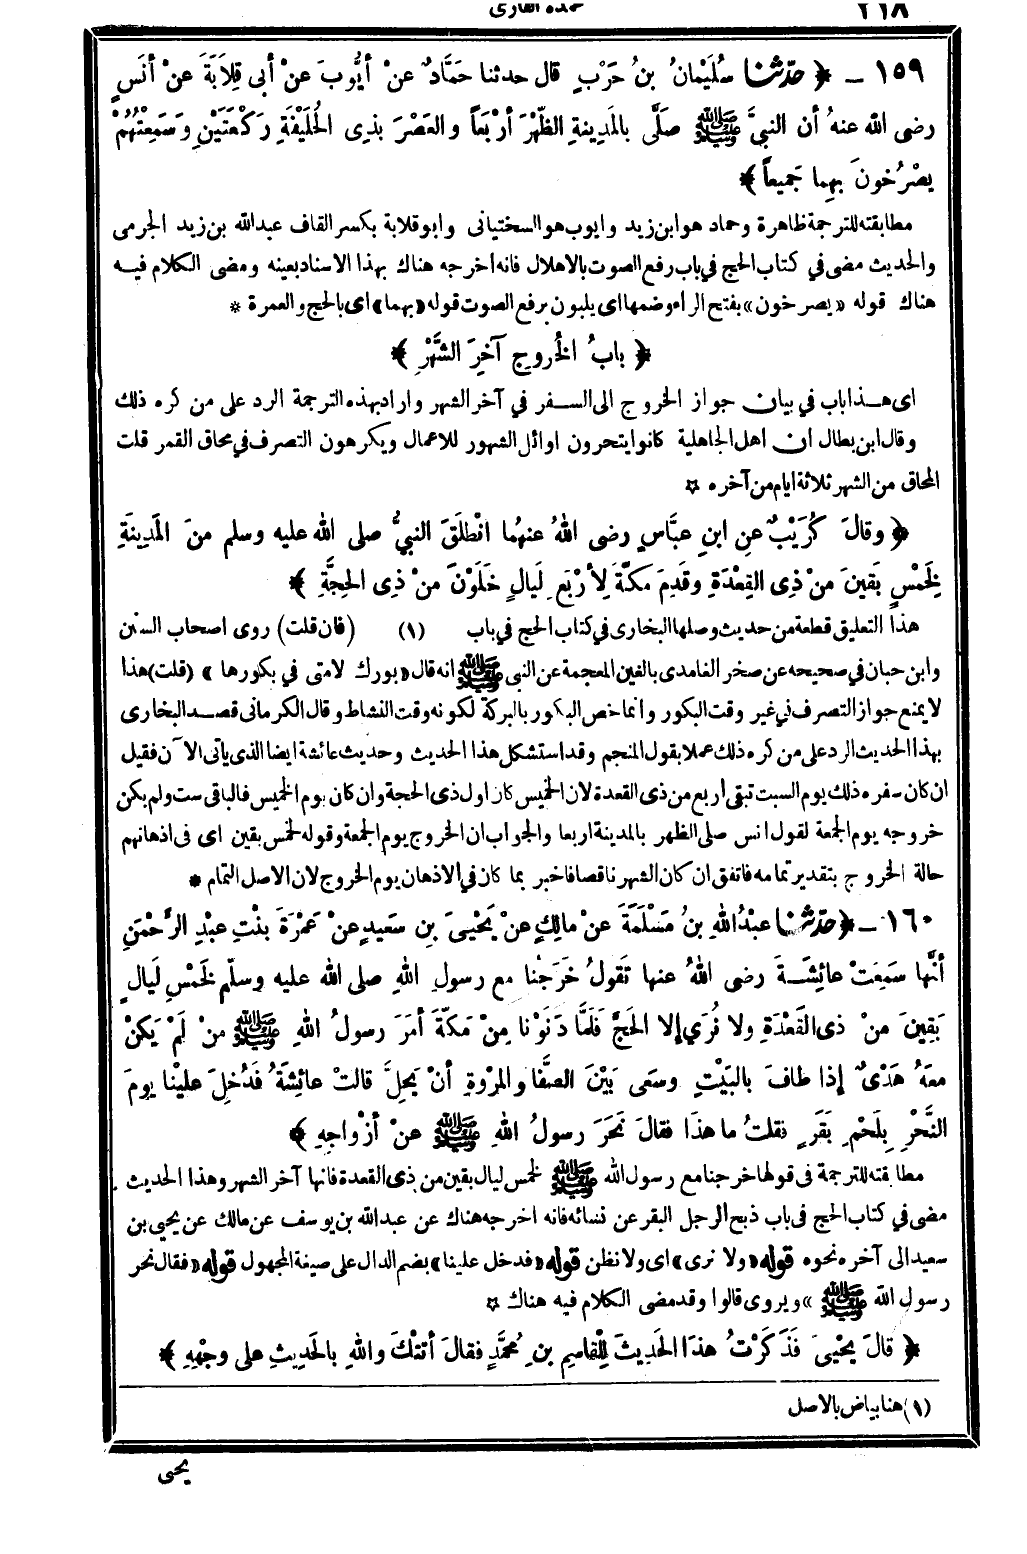 ٢١٨ عمدة القارى
١٥٩ - ﴿ حَدَّثَنَا سُلَيْمانُ بنُ حَرْبٍ قال حدثنا حَمَّادٌ عنْ أيُّوبَ عَنْ أبى قِلَابَةَ عنْ أنَسٍ
رضى الله عنهُ أن النبيَّ ﷺ صَلَّى بالمَدِينةِ الظُّهْرَ أرْبَعاً والعَصْرَ بذِى الحُلَيْفَةِ رَكْعَتَيْنِ وَسَمِعْتُهُمْ
يصْرُخُونَ بِهِما جَمِيعاً ﴾
مطابقته للترجمة ظاهرة وحماد هو ابن زيد وايوب هو السختيانى وابو قلابة بكسر القاف عبدالله بن زيد الجرمى
والحديث مضى في كتاب الحج في باب رفع الصوت بالاهلال فانه اخرجه هناك بهذا الاسناد بعينه ومضى الكلام فيه
هناك قوله «يصرخون» بفتح الراء وضمها اى يلبون برفع الصوت قوله «بهما» اى بالحج والعمرة *
﴿ بابُ الخُروجِ آخِرَ الشَّهْرِ ﴾
اى هذا باب في بيان جواز الخروج الى السفر في آخر الشهر واراد بهذه الترجمة الرد على من كره ذلك
وقال ابن بطال ان اهل الجاهلية كانوا يتحرون اوائل الشهور للاعمال ويكرهون التصرف في محاق القمر قلت
المحاق من الشهر ثلاثة ايام من آخره ☆
﴿ وقالَ كُرَيْبٌ عنِ ابنِ عبَّاسٍ رضى اللهُ عنهُما انْطلَقَ النبيُّ صلى الله عليه وسلم منَ المَدِينَةِ
لِخَمْسٍ بَقِينَ منْ ذِى القَعْدَةِ وقَدِمَ مكَّةَ لِأرْبَعِ لَيالٍ خَلَوْنَ منْ ذِى الحِجَّةِ ﴾
هذا التعليق قطعة من حديث وصلها البخارى في كتاب الحج في باب (١) (فان قلت) روى اصحاب السنن
وابن حبان في صحيحه عن صخر الغامدى بالغين المعجمة عن النبى ﷺ انه قال «بورك لامتى في بكورها» (قلت) هذا
لا يمنع جواز التصرف في غير وقت البكور وانما خص البكور بالبركة لكونه وقت النشاط وقال الكرمانى قصد البخارى
بهذا الحديث الرد على من كره ذلك عملا بقول المنجم وقد استشكل هذا الحديث وحديث عائشة ايضا الذى يأتى الآن فقيل
ان كان سفره ذلك يوم السبت تبقى أربع من ذى القعدة لان الخميس كان اول ذى الحجة وان كان يوم الخميس فالباقى ست ولم يكن
خروجه يوم الجمعة لقول انس صلى الظهر بالمدينة اربعا والجواب ان الخروج يوم الجمعة وقوله لخمس بقين اى فى اذهانهم
حالة الخروج بتقدير تمامه فاتفق ان كان الشهر ناقصا فاخبر بما كان في الاذهان يوم الخروج لان الاصل التمام *
١٦٠ - ﴿ حَدَّثَنَا عبْدُاللهِ بنُ مَسْلَمَةَ عنْ مالِكٍ عنْ يَحْيىَ بنِ سَعيدٍ عنْ عَمْرَةَ بنْتِ عبْدِ الرَّحْمٰنِ
أنَّها سَمِعَتْ عائِشَةَ رضى اللهُ عنها تَقُولُ خَرَجْنا مع رسولِ اللهِ صلى الله عليه وسلّم لخَمْسِ لَيالٍ
بَقِينَ منْ ذى القَعْدَةِ ولا نُرَي إلا الحَجَّ فَلَمَّا دَنَوْنا مِنْ مَكَّةَ أمَرَ رسولُ اللهِ ﷺ منْ لَمْ يَكنْ
معَهُ هَدْىٌ إذا طافَ بالبَيْتِ وسَعَى بَيْنَ الصَّفا والمَرْوةِ أنْ يَحِلَّ قالتْ عائِشَةُ فَدُخِلَ علَيْنا يومَ
النَّحْرِ بِلَحْمِ بَقَرٍ فقلتُ ما هذَا فقالَ نَحَرَ رسولُ اللهِ ﷺ عنْ أزْواجِهِ ﴾
مطابقته للترجمة فى قولها خرجنا مع رسول الله ﷺ لخمس ليال بقين من ذى القعدة فانها آخر الشهر وهذا الحديث
مضى في كتاب الحج فى باب ذبح الرجل البقر عن نسائه فانه اخرجه هناك عن عبدالله بن يوسف عن مالك عن يحيى بن
سعيد الى آخره نحوه قوله «ولا نرى» اى ولا نظن قوله «فدخل علينا» بضم الدال على صيغة المجهول قوله «فقال نحر
رسول الله ﷺ» ويروى قالوا وقد مضى الكلام فيه هناك ☆
﴿ قالَ يَحْيىَ فَذَكَرْتُ هذَا الحَدِيثَ لِلْقاسِمِ بنِ مُحمَّدٍ فقالَ أتَتْكَ واللهِ بالحَدِيثِ على وجْهِهِ ﴾
(١) هنا بياض بالاصل
يحيى